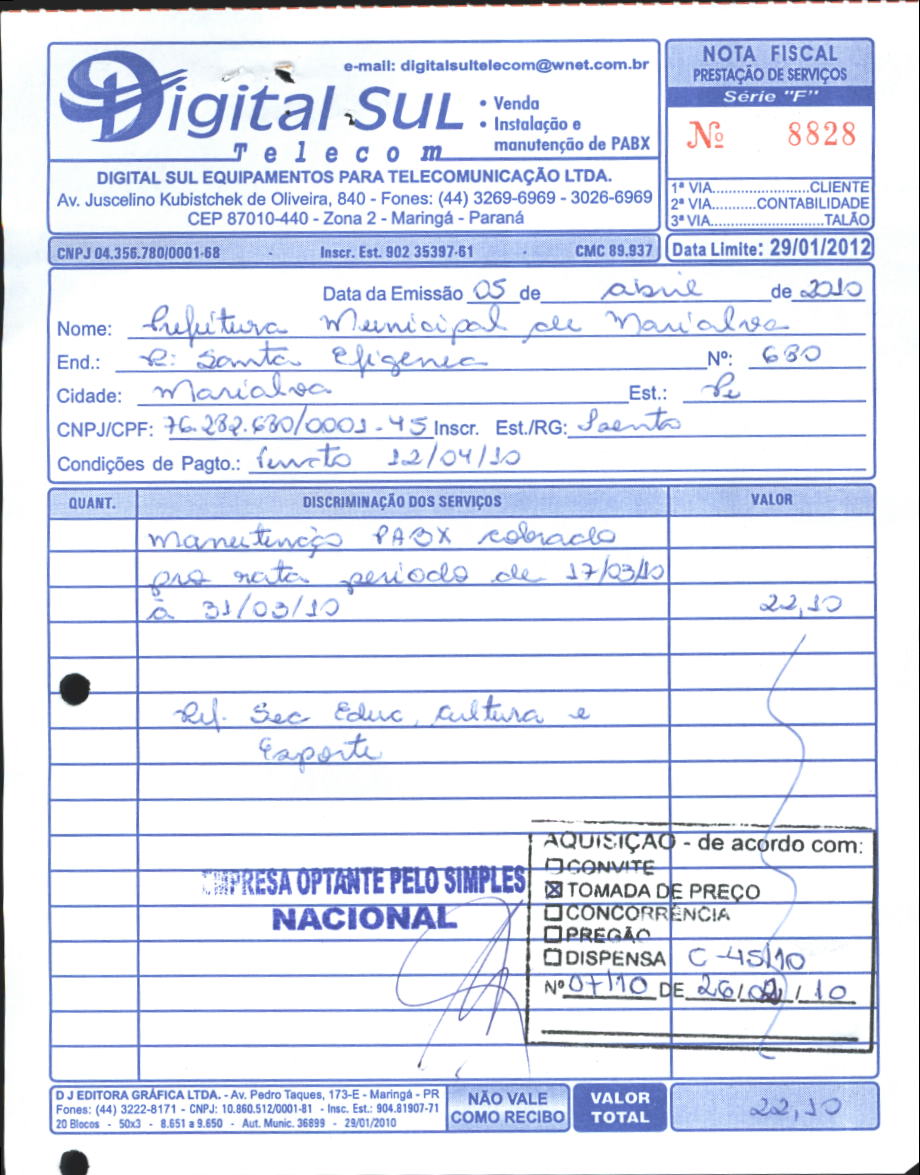 e-mail: digitalsultelecom@wnet.com.br
Digital Sul
Telecom
• Venda
• Instalação e
manutenção de PABX
DIGITAL SUL EQUIPAMENTOS PARA TELECOMUNICAÇÃO LTDA.
Av. Juscelino Kubistchek de Oliveira, 840 - Fones: (44) 3269-6969 - 3026-6969
CEP 87010-440 - Zona 2 - Maringá - Paraná
NOTA FISCAL
PRESTAÇÃO DE SERVIÇOS
Série "F"
Nº 8828
1ª VIA......................CLIENTE
2ª VIA..........CONTABILIDADE
3ª VIA.........................TALÃO
CNPJ 04.356.780/0001-68 - Inscr. Est. 902 35397-61 CMC 89.937
Data Limite: 29/01/2012
Data da Emissão 05 de abril de 2010
Nome: Prefeitura Municipal de Marialva
End.: R: Santa Efigenia Nº: 680
Cidade: Marialva Est.: Pr
CNPJ/CPF: 76.282.680/0001-45 Inscr. Est./RG: Isento
Condições de Pagto.: Vencto 12/04/10
QUANT. DISCRIMINAÇÃO DOS SERVIÇOS VALOR
Manutenção PABX cobrado
pro rata periodo de 17/03/10
à 31/03/10 22,10
Ref. Sec Educ, Cultura e
Esporte
EMPRESA OPTANTE PELO SIMPLES
NACIONAL
AQUISIÇÃO - de acordo com:
☐CONVITE
☒TOMADA DE PREÇO
☐CONCORRÊNCIA
☐PREGÃO
☐DISPENSA C-45/10
Nº 07/10 DE 26/02/10
D J EDITORA GRÁFICA LTDA. - Av. Pedro Taques, 173-E - Maringá - PR
Fones: (44) 3222-8171 - CNPJ: 10.860.512/0001-81 - Insc. Est.: 904.81907-71
20 Blocos - 50x3 - 8.651 a 9.650 - Aut. Munic. 36899 - 29/01/2010
NÃO VALE
COMO RECIBO
VALOR
TOTAL
22,10